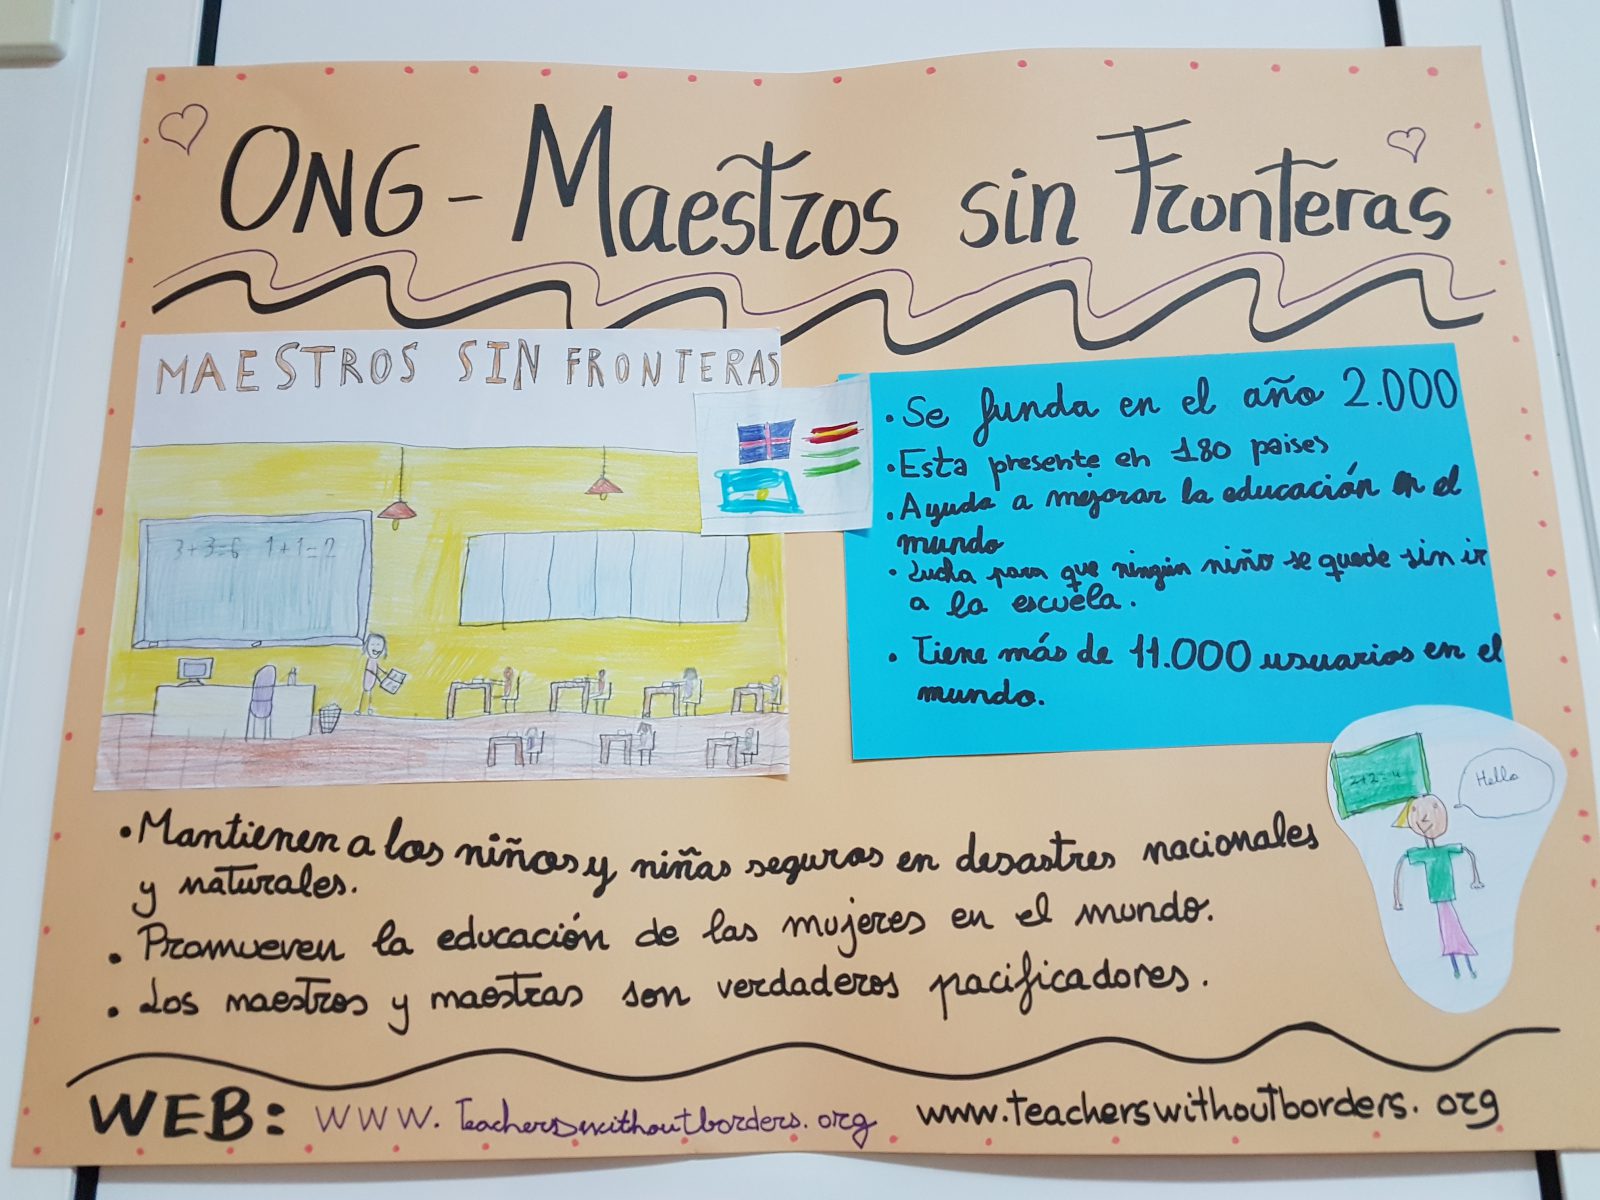 ONG - Maestros sin Fronteras
MAESTROS SIN FRONTERAS
3+3=6 1+1=2
• Se funda en el año 2.000
• Esta presente en 180 paises
• Ayuda a mejorar la educación en el
mundo
• Lucha para que ningún niño se quede sin ir
a la escuela.
• Tiene más de 11.000 usuarios en el
mundo.
2+2=4
Hello
• Mantienen a los niños y niñas seguros en desastres nacionales
y naturales.
• Promueven la educación de las mujeres en el mundo.
• Los maestros y maestras son verdaderos pacificadores.
WEB: www.Teacherswithoutborders.org www.teacherswithoutborders.org